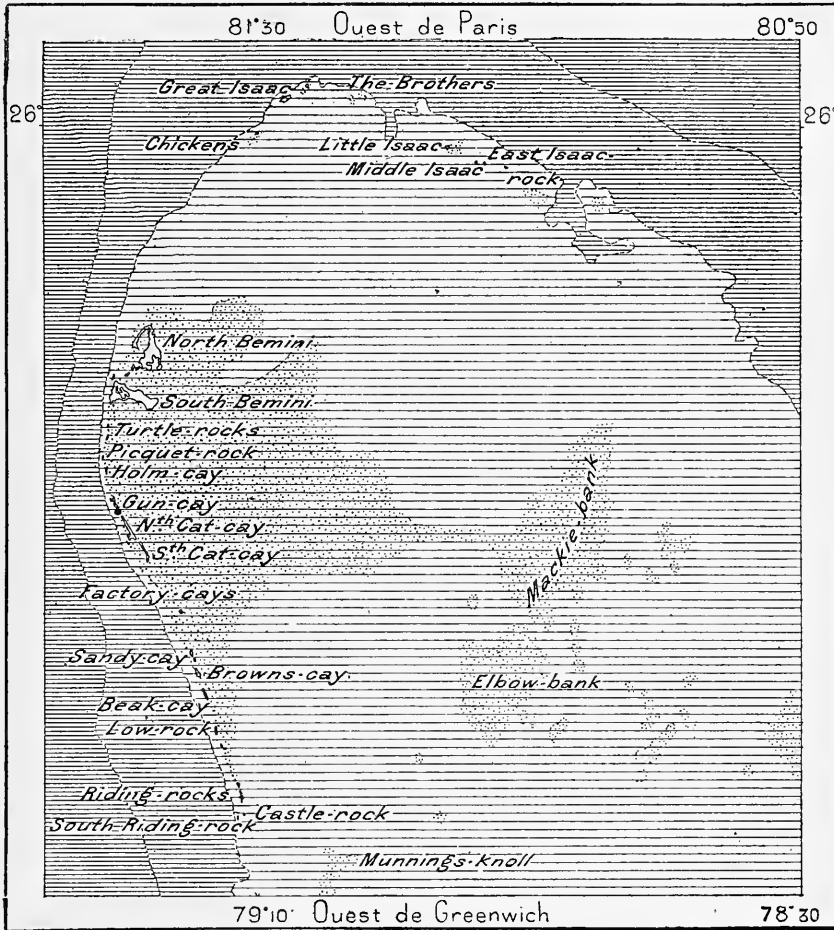 81°30 Ouest de Paris 80°50
Great-Isaac The-Brothers
26° 26°
Chickens Little Isaac East Isaac-
Middle Isaac rock
North-Bemini
South-Bemini
Turtle-rocks
Picquet-rock
Holm-cay
Gun-cay
Nth Cat-cay
Sth Cat-cay
Mackie-bank
Factory-cays
Sandy-cay
Browns-cay
Elbow-bank
Beak-cay
Low-rock
Riding-rocks
Castle-rock
South-Riding-rock
Munnings-knoll
79°10' Ouest de Greenwich 78°30